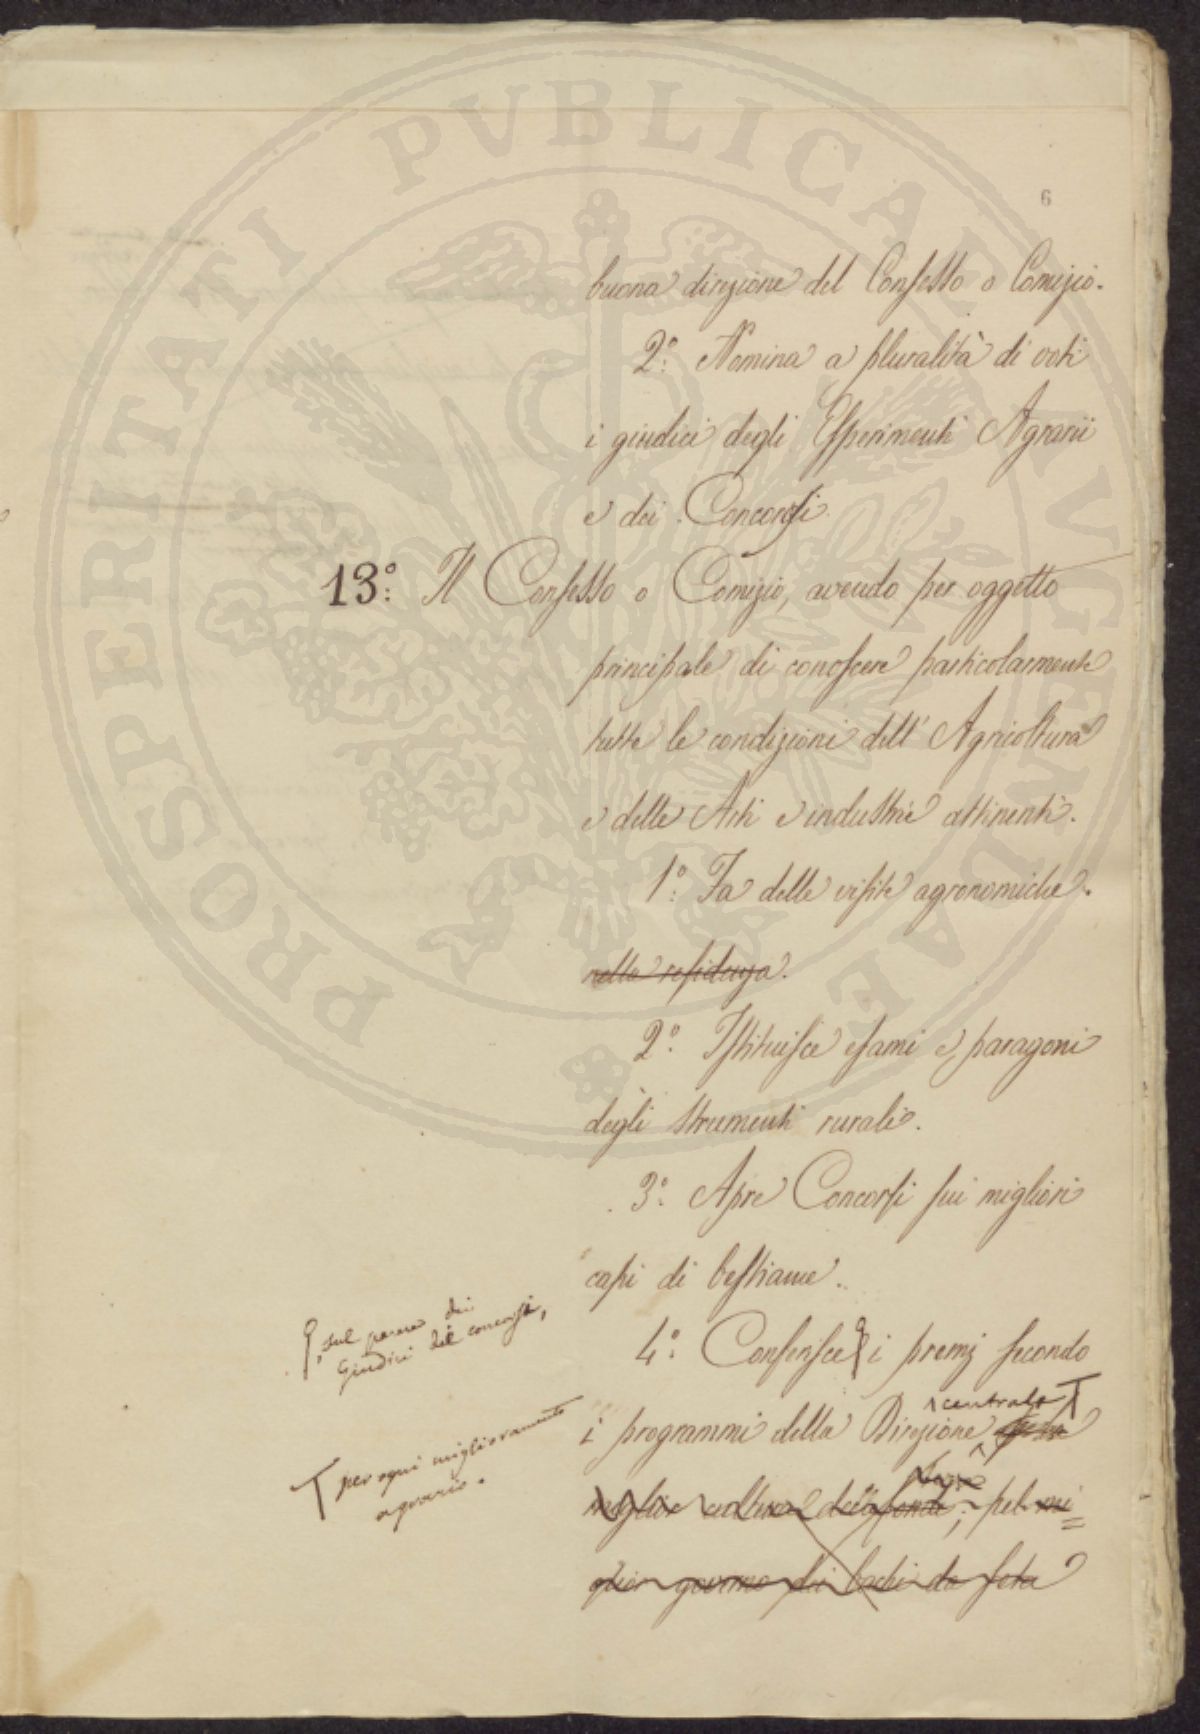 PROSPERITATI PUBLICAE AUGENDAE
6
buona direzione del Consesso o Comizio.
2.° Nomina a pluralità di voti
i giudici degli Esperimenti Agrarii
e dei Concorsi.
13.° Il Consesso o Comizio, avendo per oggetto
principale di conoscere particolarmente
tutte le condizioni dell' Agricoltura
e delle Arti e industrie attinenti.
1.° Fa delle visite agronomiche.
nella residenza.
2.° Istituisce esami e paragoni
degli strumenti rurali.
3.° Apre Concorsi sui migliori
capi di bestiame.
4.° Conferisce i premj secondo
, sul parere dei
Giudici del concorsi,
centrale
i programmi della Direzione
per ogni miglioramento
agrario.
miglior coltura dei fondi; pel mi
glior governo dei bachi da seta